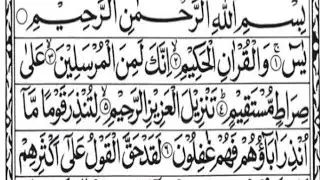 بِسْمِ اللهِ الرَّحْمٰنِ الرَّحِيْمِ
يٰسٓ ۝١ وَالْقُرْاٰنِ الْحَكِيْمِ ۝٢ اِنَّكَ لَمِنَ الْمُرْسَلِيْنَ ۝٣ عَلٰى
صِرَاطٍ مُّسْتَقِيْمٍ ۝٤ تَنْزِيْلَ الْعَزِيْزِ الرَّحِيْمِ ۝٥ لِتُنْذِرَ قَوْمًا مَّاۤ
اُنْذِرَ اٰبَآؤُهُمْ فَهُمْ غٰفِلُوْنَ ۝٦ لَقَدْ حَقَّ الْقَوْلُ عَلٰۤى اَكْثَرِهِمْ